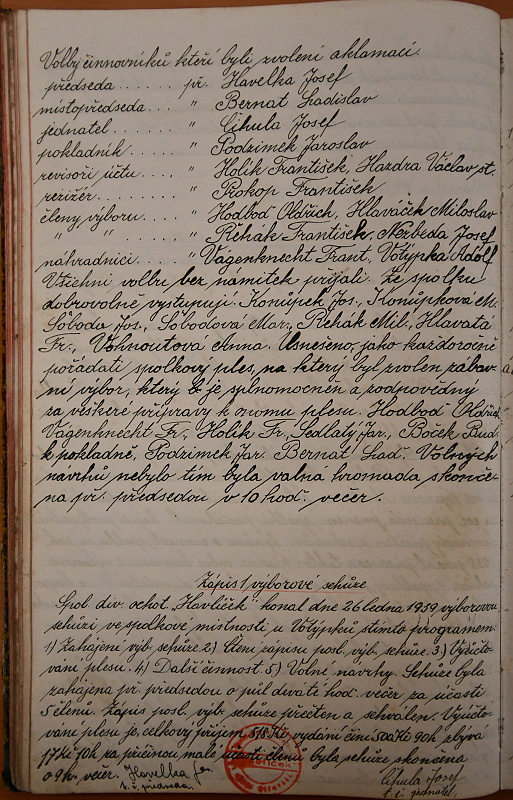 Volby činnovníků kteří byli zvoleni aklamací.
předseda . . . . . př. Havelka Josef
místopředseda . . . . „ Bernat Ladislav
jednatel . . . . . . „ Cihula Josef
pokladník . . . . . „ Podzimek Jaroslav
revisoři účtu . . . . „ Holík František, Hazdra Václav st.
režizér . . . . . . „ Prokop František
členy výboru . . . . „ Hodboď Oldřich, Hlaváček Miloslav
„ „ . . . . . „ Řehák František, Nerbeda Josef
náhradníci . . . . „ Vagenknecht Frant., Votýpka Adolf
Všichni volbu bez námitek přijali. Ze spolku
dobrovolně vystupují. Konůpek Jos., Konůpková M.
Soboda Jos., Sobodová Mar., Řehák Mil., Hlavatá
Fr., Vohnoutová Anna. Usnešeno, jako každoročně
pořádati spolkový ples, na který byl zvolen zábav-
ní výbor, který je splnomocněn a zodpovědný
za veškeré přípravy k onomu plesu. Hodboď Oldřich
Vagenknecht Fr., Holík Fr., Sedlatý Jar., Boček Bud.
k pokladně, Podzimek Jar. Bernat Lad. Volných
návrhů nebylo tím byla valná hromada skonče-
na př. předsedou v 10 hod. večer.
Zápis 1 výborové schůze
Spol. div. ochot. „Havlíček" konal dne 26 ledna 1939 výborovou
schůzi ve spolkové místnosti u Votýpků s tímto programem.
1) Zahájení výb. schůze. 2) Čtení zápisu posl. výb. schůze. 3) Vyúčto-
vání plesu. 4) Další činnost. 5) Volné návrhy. Schůze byla
zahájena př. předsedou o půl diváté hod. večer za účasti
5 členů. Zápis posl. výb. schůze přečten a schválen. Vyúčto-
vání plesu je, celkový příjem 518 Kč vydání činí 500 Kč 90h zbývá
17 Kč 10h za příčinou malé účasti členů byla schůze skončena
o 9 h. večer. Havelka Jos. Cihula Josef
t. č. předseda t. č. jednatel